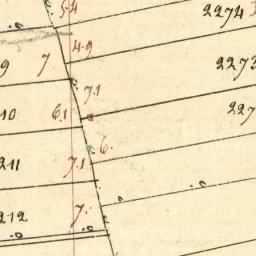 54
2274
49
9 7
2273
71
10 61
227
6.
211 71
212 7.